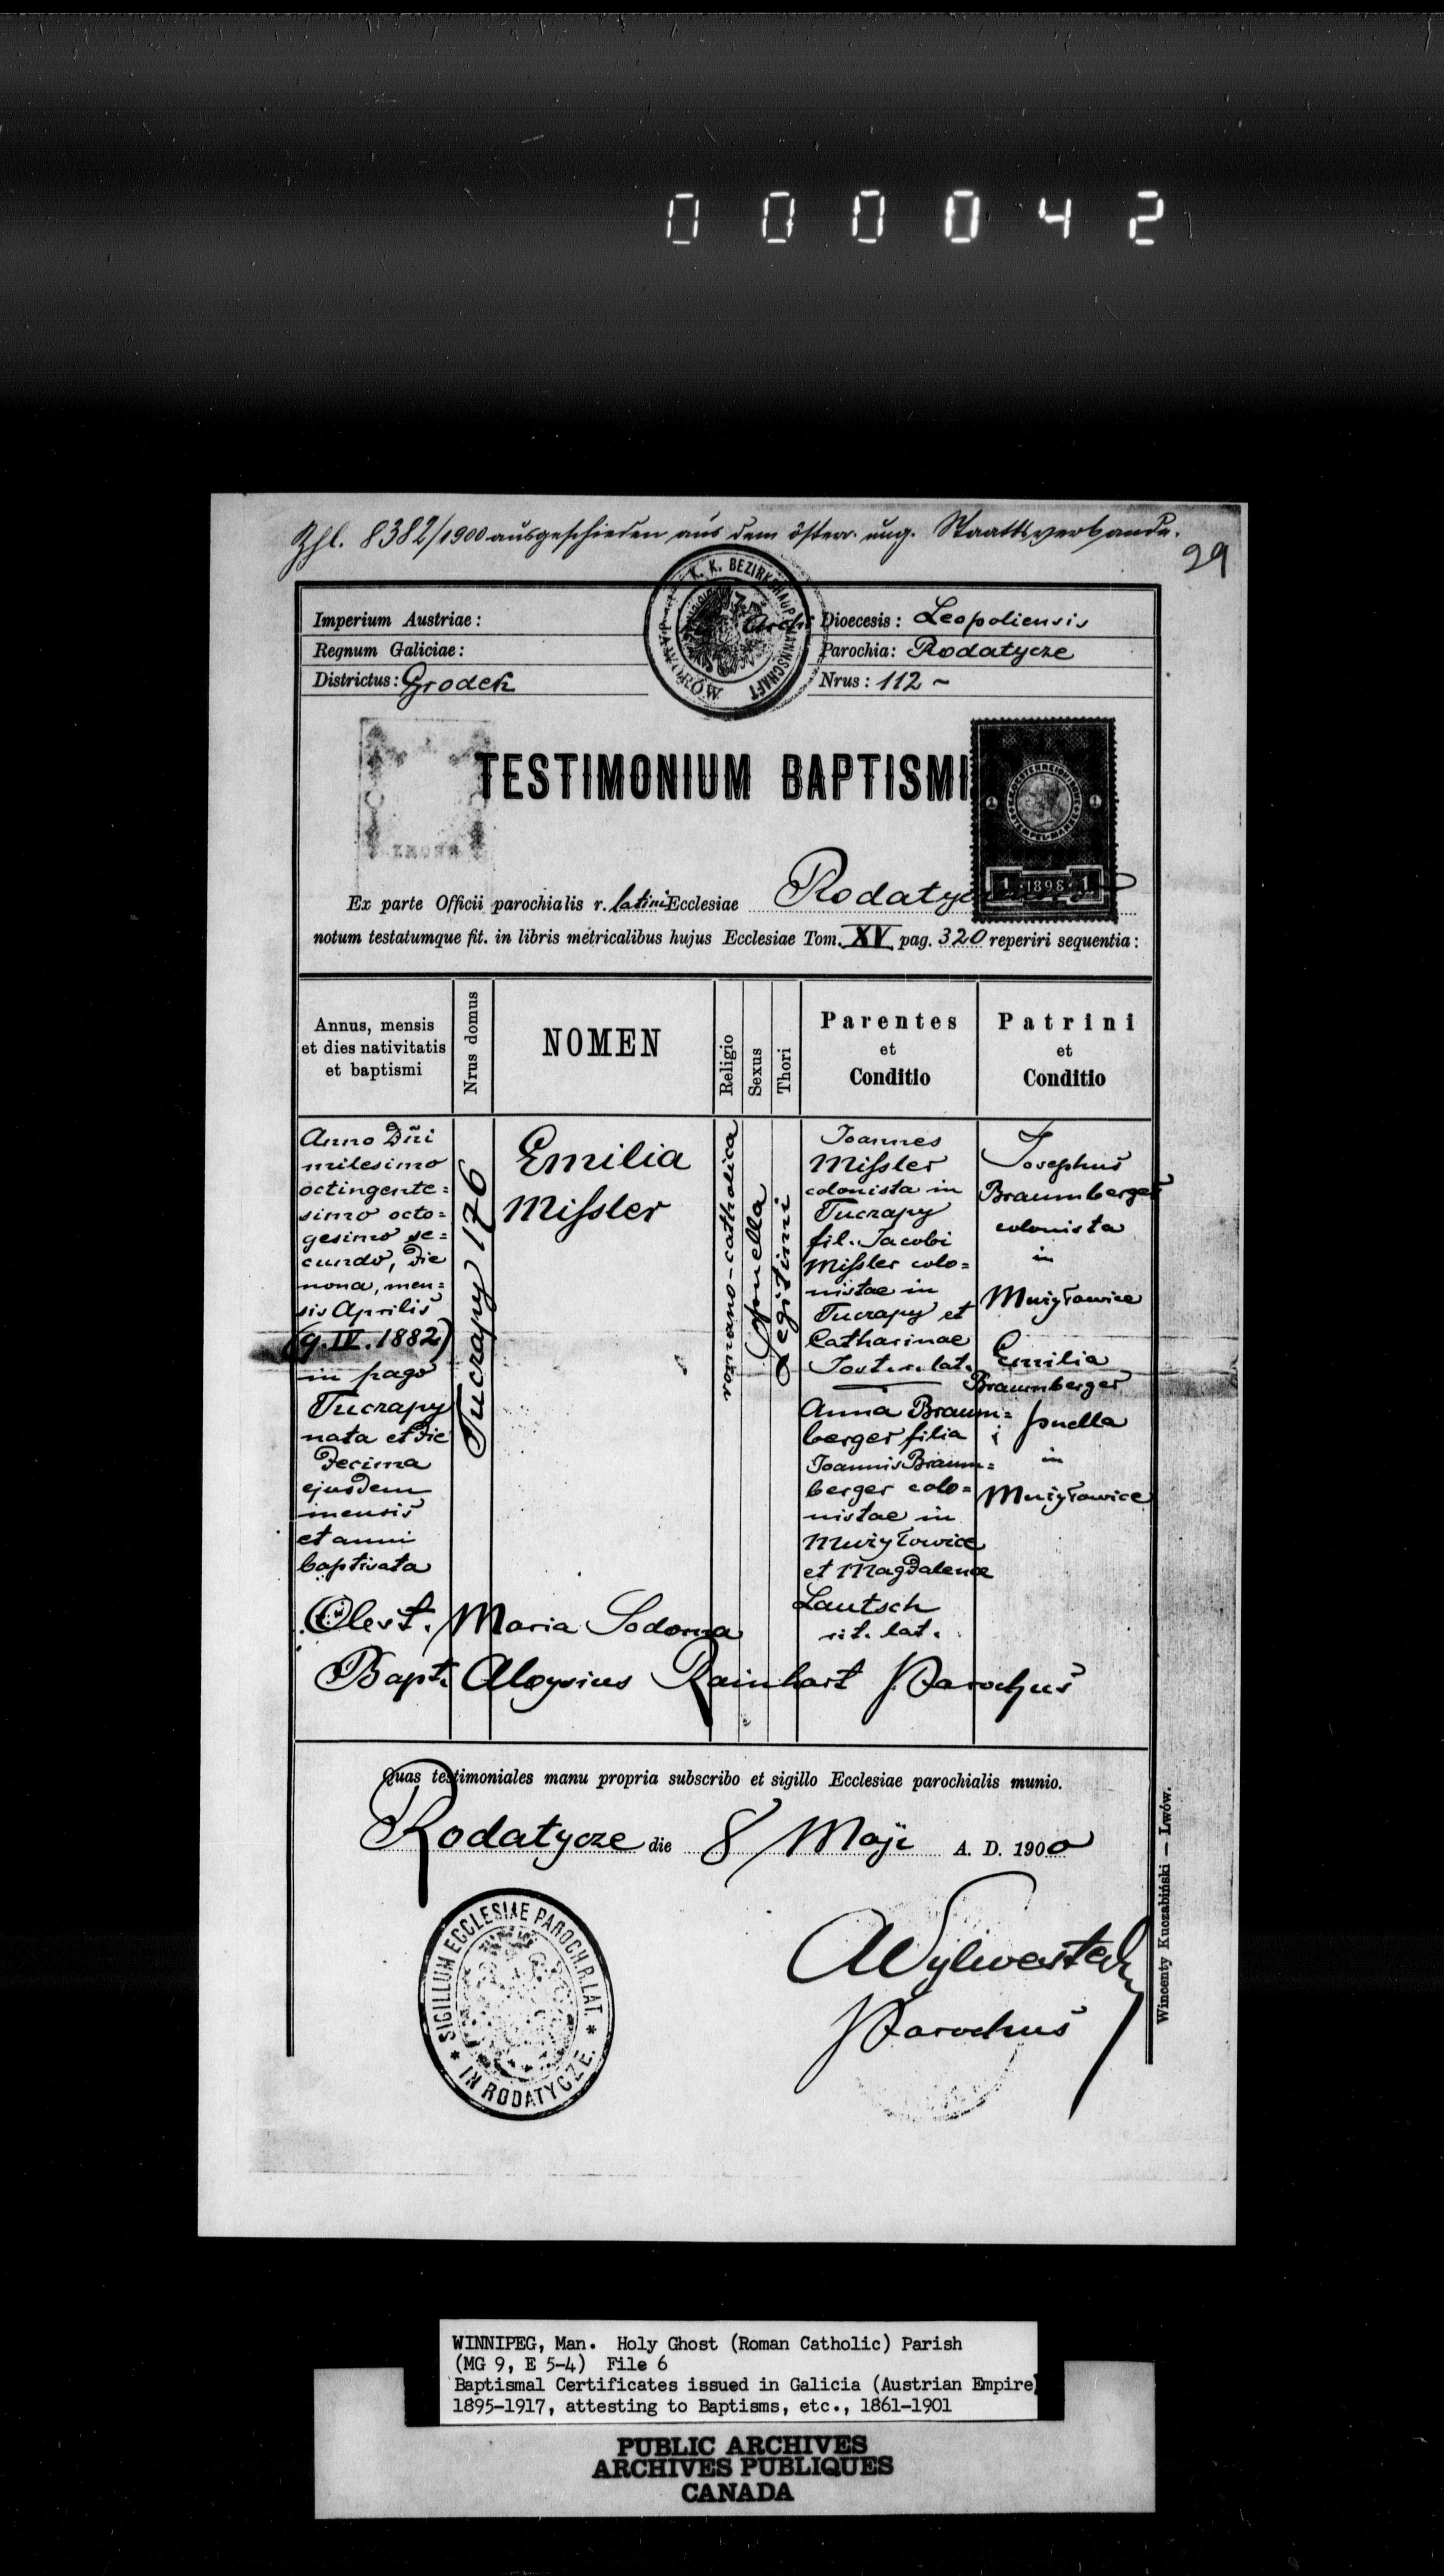 000042
Zhl. 8382/1900 ausgeschieden aus dem österr. ung. Staatsverbande.
29
K. K. BEZIRKSHAUPTMANNSCHAFT JAWORÓW
Imperium Austriae:
Archi Dioecesis: Leopoliensis
Regnum Galiciae:
Parochia: Rodatycze
Districtus: Grodek
Nrus: 112 ~
TESTIMONIUM BAPTISMI
1 1
1 1898 1
Ex parte Officii parochialis r. latini Ecclesiae
notum testatumque fit. in libris metricalibus hujus Ecclesiae Tom. XV pag. 320 reperiri sequentia:
Annus, mensis
et dies nativitatis
et baptismi
Nrus domus
NOMEN
Religio
Sexus
Thori
Parentes
et
Conditio
Patrini
et
Conditio
Anno Dñi
milesimo
octingente=
simo octo=
gesimo se=
cundo, die
nona, men=
sis Aprilis
(9. IV. 1882)
in pago
Tucrapy
nata et die
decima
ejusdem
mensis
et anni
baptisata
Tucrapy 176
Emilia
Mißler
romano-catholica
puella
Legitimi
Joannes
Mißler
colonista in
Tucrapy
fil. Jacobi
Mißler colo=
nistae in
Tucrapy et
Catharinae
lat.
Anna Braum=
berger filia
Joannis Braum=
berger colo=
nistae in
Mużyłowice
et Magdalenae
Lautsch
rit. lat.
Josephus
Braumberger
colonista
in
Mużyłowice
Emilia
Braumberger
puella
in
Mużyłowice
Obest. Maria Sodoma
Bapt. Aloysius Rainhart Parochus
Quas testimoniales manu propria subscribo et sigillo Ecclesiae parochialis munio.
Rodatycze die 8 Maji A. D. 1900
SIGILLUM ECCLESIAE PAROCH. R. LAT. * IN RODATYCZE. *
AWylwester
Parochus
Wincenty Kuczabiński — Lwów.
WINNIPEG, Man. Holy Ghost (Roman Catholic) Parish
(MG 9, E 5-4) File 6
Baptismal Certificates issued in Galicia (Austrian Empire)
1895-1917, attesting to Baptisms, etc., 1861-1901
PUBLIC ARCHIVES
ARCHIVES PUBLIQUES
CANADA